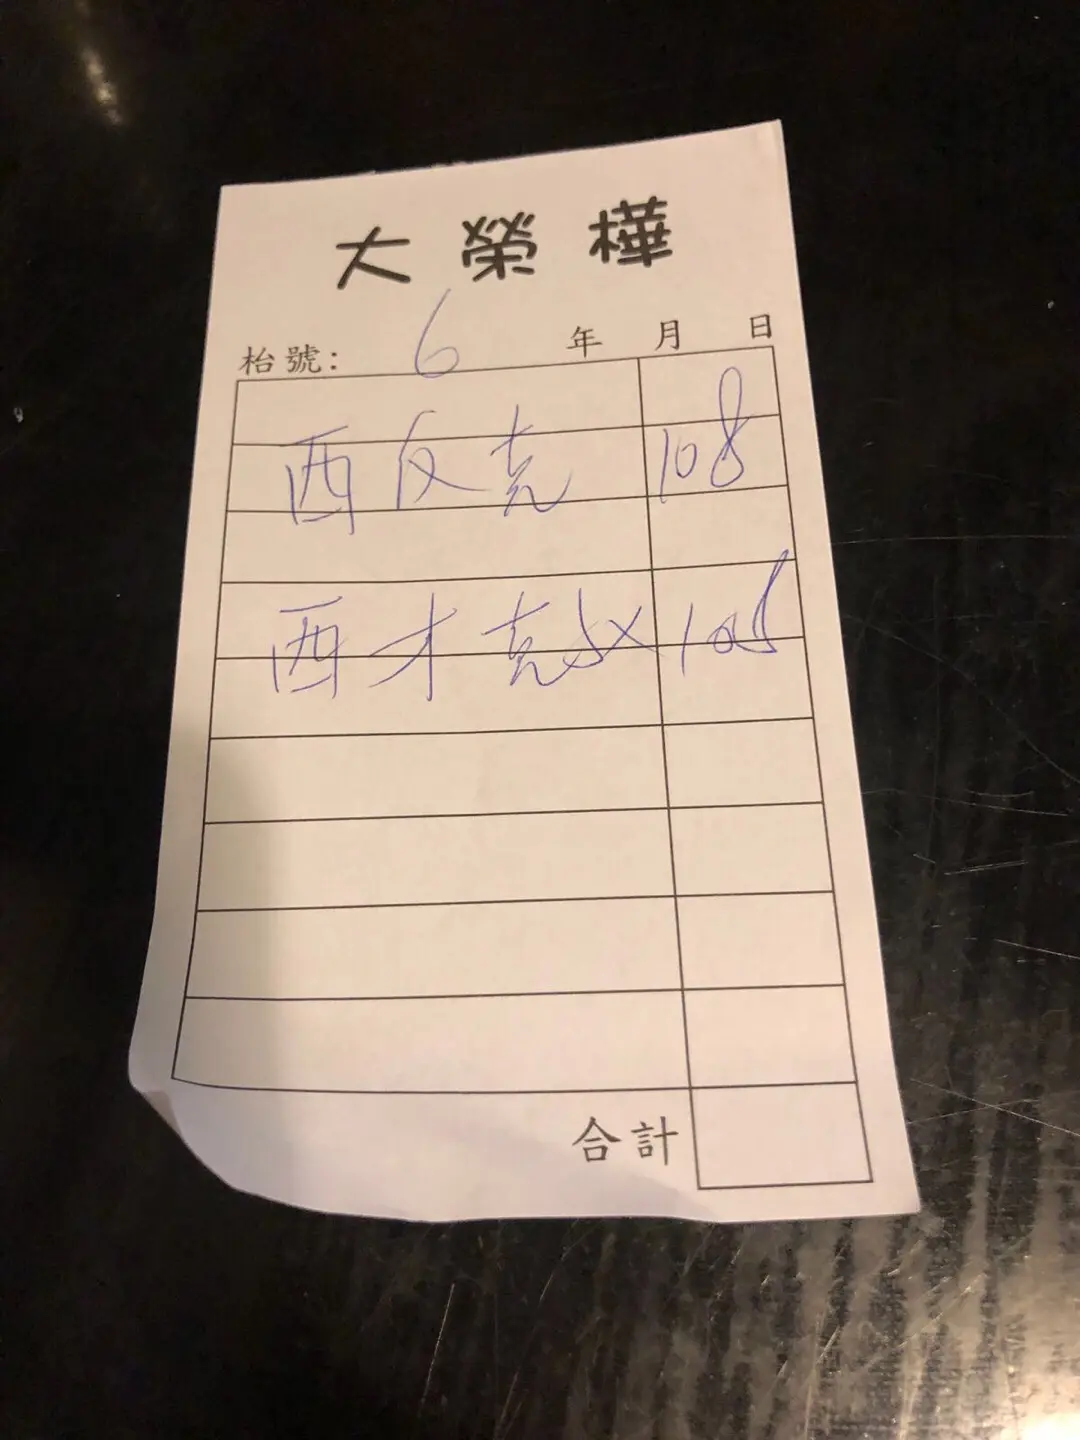 大榮樺
枱號: 6 年 月 日
西反克 108
西才克 108
合計